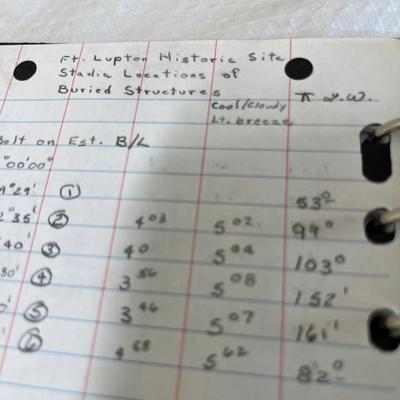 Ft. Lupton Historic Site
Stadia Locations of
Buried Structures
Cool/Cloudy
Lt. breeze
Bolt on Est. B/L
°00'00"
9°29' ① 53°
2°35' ② 4 03 5 02 99°
40' ③ 40 5 04 103°
30' ④ 3 56 5 08 152'
0' ⑤ 3 46 5 07 161'
' ⑥ 4 68 5 62 82°